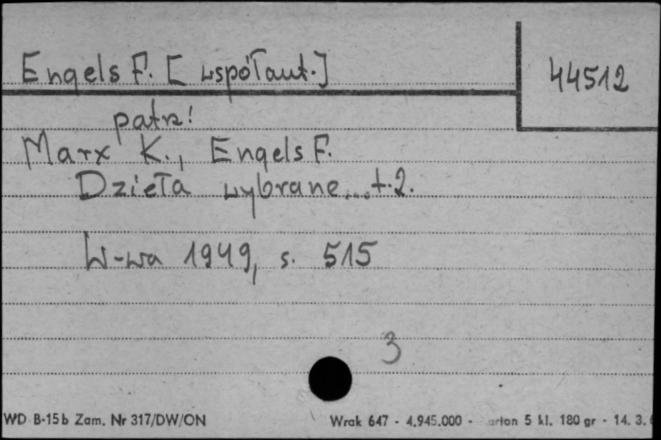 Engels F. [współaut.]
44512
patrz!
Marx K., Engels F.
Dzieła wybrane... t.2.
W-wa 1949, s. 515
3
WD B-15b Zam. Nr 317/DW/ON
Wrak 647 - 4.945.000 - arton 5 kl. 180 gr - 14. 3.